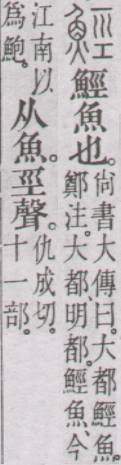 𩷏魚也。
尙書大傳曰。大都𩷏魚。
鄭注。大都、明都。𩷏魚、今
江南以
爲鮑。
从魚。巠聲。
仇成切。
十一部。